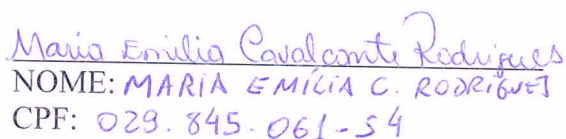 Maria Emilia Cavalcante Rodrigues
NOME: MARIA EMÍLIA C. RODRIGUES
CPF: 029.845.061-54